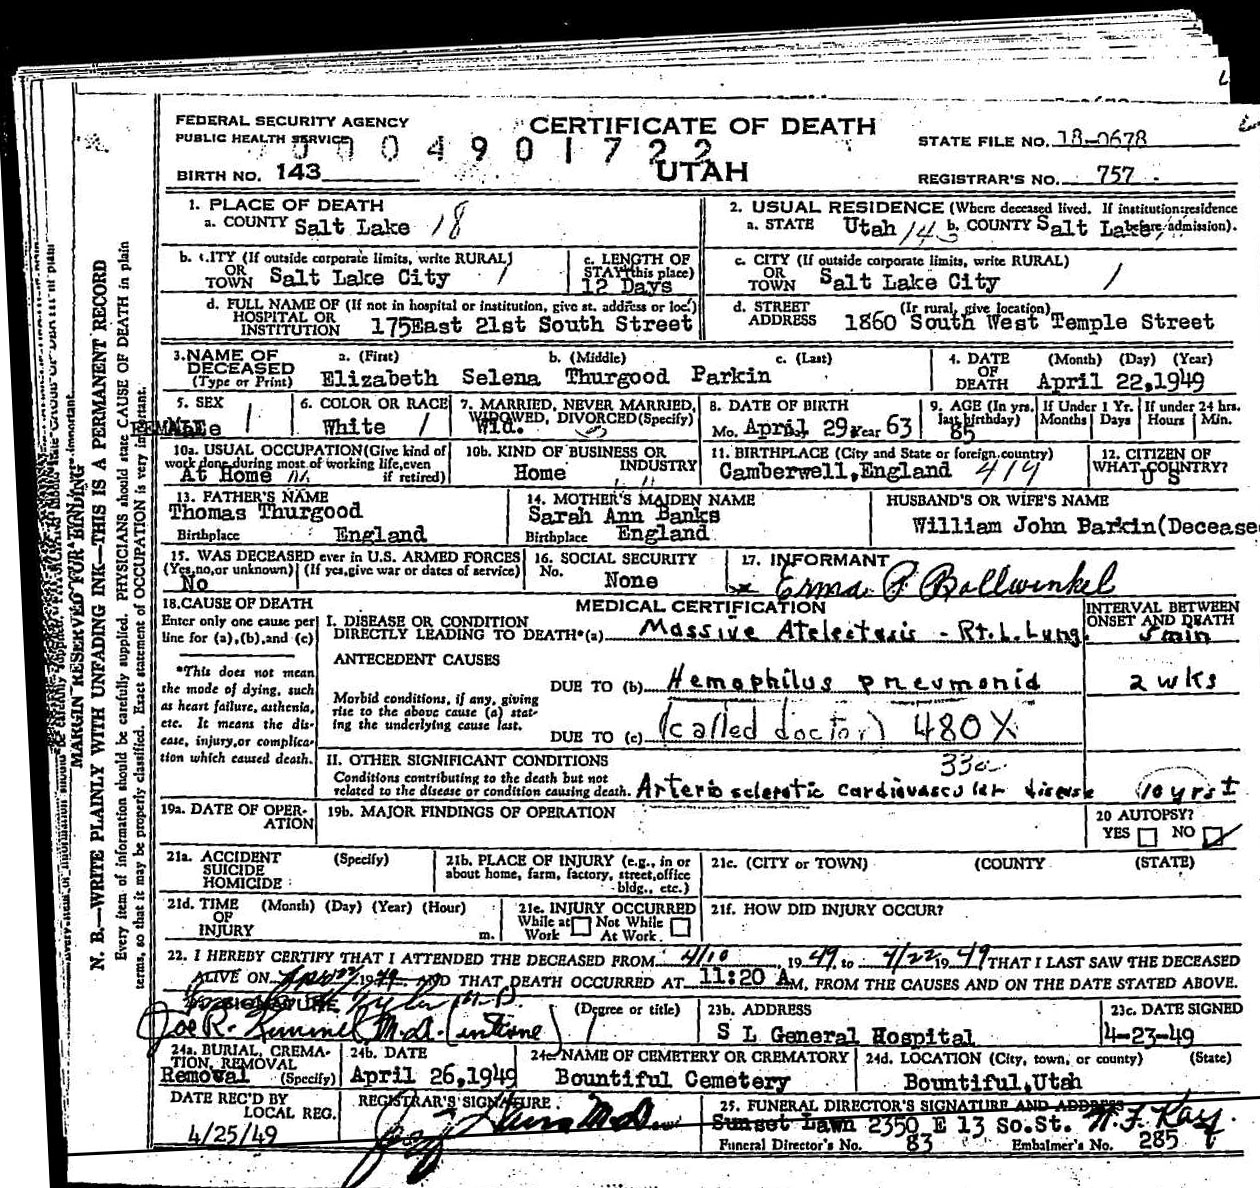 FEDERAL SECURITY AGENCY
PUBLIC HEALTH SERVICE
CERTIFICATE OF DEATH
UTAH
0 4 9 0 1 7 2 2
STATE FILE NO. 18-0678
BIRTH NO. 143
REGISTRAR'S NO. 757
1. PLACE OF DEATH
a. COUNTY Salt Lake 18
2. USUAL RESIDENCE (Where deceased lived. If institution: residence before admission).
a. STATE Utah 143 b. COUNTY Salt Lake
b. CITY (If outside corporate limits, write RURAL)
OR TOWN Salt Lake City 1
c. LENGTH OF STAY (this place)
12 Days
c. CITY (If outside corporate limits, write RURAL)
OR TOWN Salt Lake City 1
d. FULL NAME OF (If not in hospital or institution, give st. address or loc.)
HOSPITAL OR INSTITUTION 175East 21st South Street
d. STREET ADDRESS (If rural, give location)
1860 South West Temple Street
3. NAME OF DECEASED (Type or Print)
a. (First) b. (Middle) c. (Last)
Elizabeth Selena Thurgood Parkin
4. DATE OF DEATH (Month) (Day) (Year)
April 22,1949
5. SEX 1
FEMALE
6. COLOR OR RACE
White 1
7. MARRIED, NEVER MARRIED, WIDOWED, DIVORCED (Specify)
Wid.
8. DATE OF BIRTH
Mo. April 29 Year 63
9. AGE (In yrs. last birthday)
85
If Under 1 Yr. Months Days
If under 24 hrs. Hours Min.
10a. USUAL OCCUPATION (Give kind of work done during most of working life, even if retired)
At Home
10b. KIND OF BUSINESS OR INDUSTRY
Home
11. BIRTHPLACE (City and State or foreign country)
Camberwell, England 414
12. CITIZEN OF WHAT COUNTRY?
U S
13. FATHER'S NAME
Thomas Thurgood
Birthplace England
14. MOTHER'S MAIDEN NAME
Sarah Ann Banks
Birthplace England
HUSBAND'S OR WIFE'S NAME
William John Parkin(Decease
15. WAS DECEASED ever in U.S. ARMED FORCES
(Yes, no, or unknown) (If yes, give war or dates of service)
No
16. SOCIAL SECURITY
No. None
17. INFORMANT
x Erma P Ballwinkel
18. CAUSE OF DEATH
Enter only one cause per line for (a), (b), and (c)
*This does not mean the mode of dying, such as heart failure, asthenia, etc. It means the disease, injury, or complication which caused death.
MEDICAL CERTIFICATION
INTERVAL BETWEEN ONSET AND DEATH
I. DISEASE OR CONDITION
DIRECTLY LEADING TO DEATH* (a) Massive Atelectasis - Rt. L. Lung. 5 min
ANTECEDENT CAUSES
Morbid conditions, if any, giving rise to the above cause (a) stating the underlying cause last.
DUE TO (b) Hemophilus pneumonia 2 wks
DUE TO (c) (called doctor) 480X
II. OTHER SIGNIFICANT CONDITIONS
Conditions contributing to the death but not related to the disease or condition causing death. Arterio sclerotic cardiovascular disease 10 yrs ±
19a. DATE OF OPERATION
19b. MAJOR FINDINGS OF OPERATION
20 AUTOPSY?
YES NO
21a. ACCIDENT SUICIDE HOMICIDE (Specify)
21b. PLACE OF INJURY (e.g., in or about home, farm, factory, street, office bldg., etc.)
21c. (CITY or TOWN) (COUNTY) (STATE)
21d. TIME OF INJURY (Month) (Day) (Year) (Hour) m.
21e. INJURY OCCURRED
While at Work Not While At Work
21f. HOW DID INJURY OCCUR?
22. I HEREBY CERTIFY THAT I ATTENDED THE DECEASED FROM 4/10, 1949, to 4/22 1949 THAT I LAST SAW THE DECEASED
ALIVE ON Apr 22 1949 AND THAT DEATH OCCURRED AT 11:20 A M, FROM THE CAUSES AND ON THE DATE STATED ABOVE.
SIGNATURE (Degree or title)
Joe R. Kimmel M.D. (interne)
23b. ADDRESS
S L General Hospital
23c. DATE SIGNED
4-23-49
24a. BURIAL, CREMATION, REMOVAL (Specify)
Removal
24b. DATE
April 26,1949
24c. NAME OF CEMETERY OR CREMATORY
Bountiful Cemetery
24d. LOCATION (City, town, or county) (State)
Bountiful, Utah
DATE REC'D BY LOCAL REG.
4/25/49
REGISTRAR'S SIGNATURE
25. FUNERAL DIRECTOR'S SIGNATURE AND ADDRESS
Sunset Lawn 2350 E 13 So.St.
Funeral Director's No. 83 Embalmer's No. 285
MARGIN RESERVED FOR BINDING
N. B.—WRITE PLAINLY WITH UNFADING INK—THIS IS A PERMANENT RECORD
Every item of information should be carefully supplied. PHYSICIANS should state CAUSE OF DEATH in plain
terms, so that it may be properly classified. Exact statement of OCCUPATION is very important.